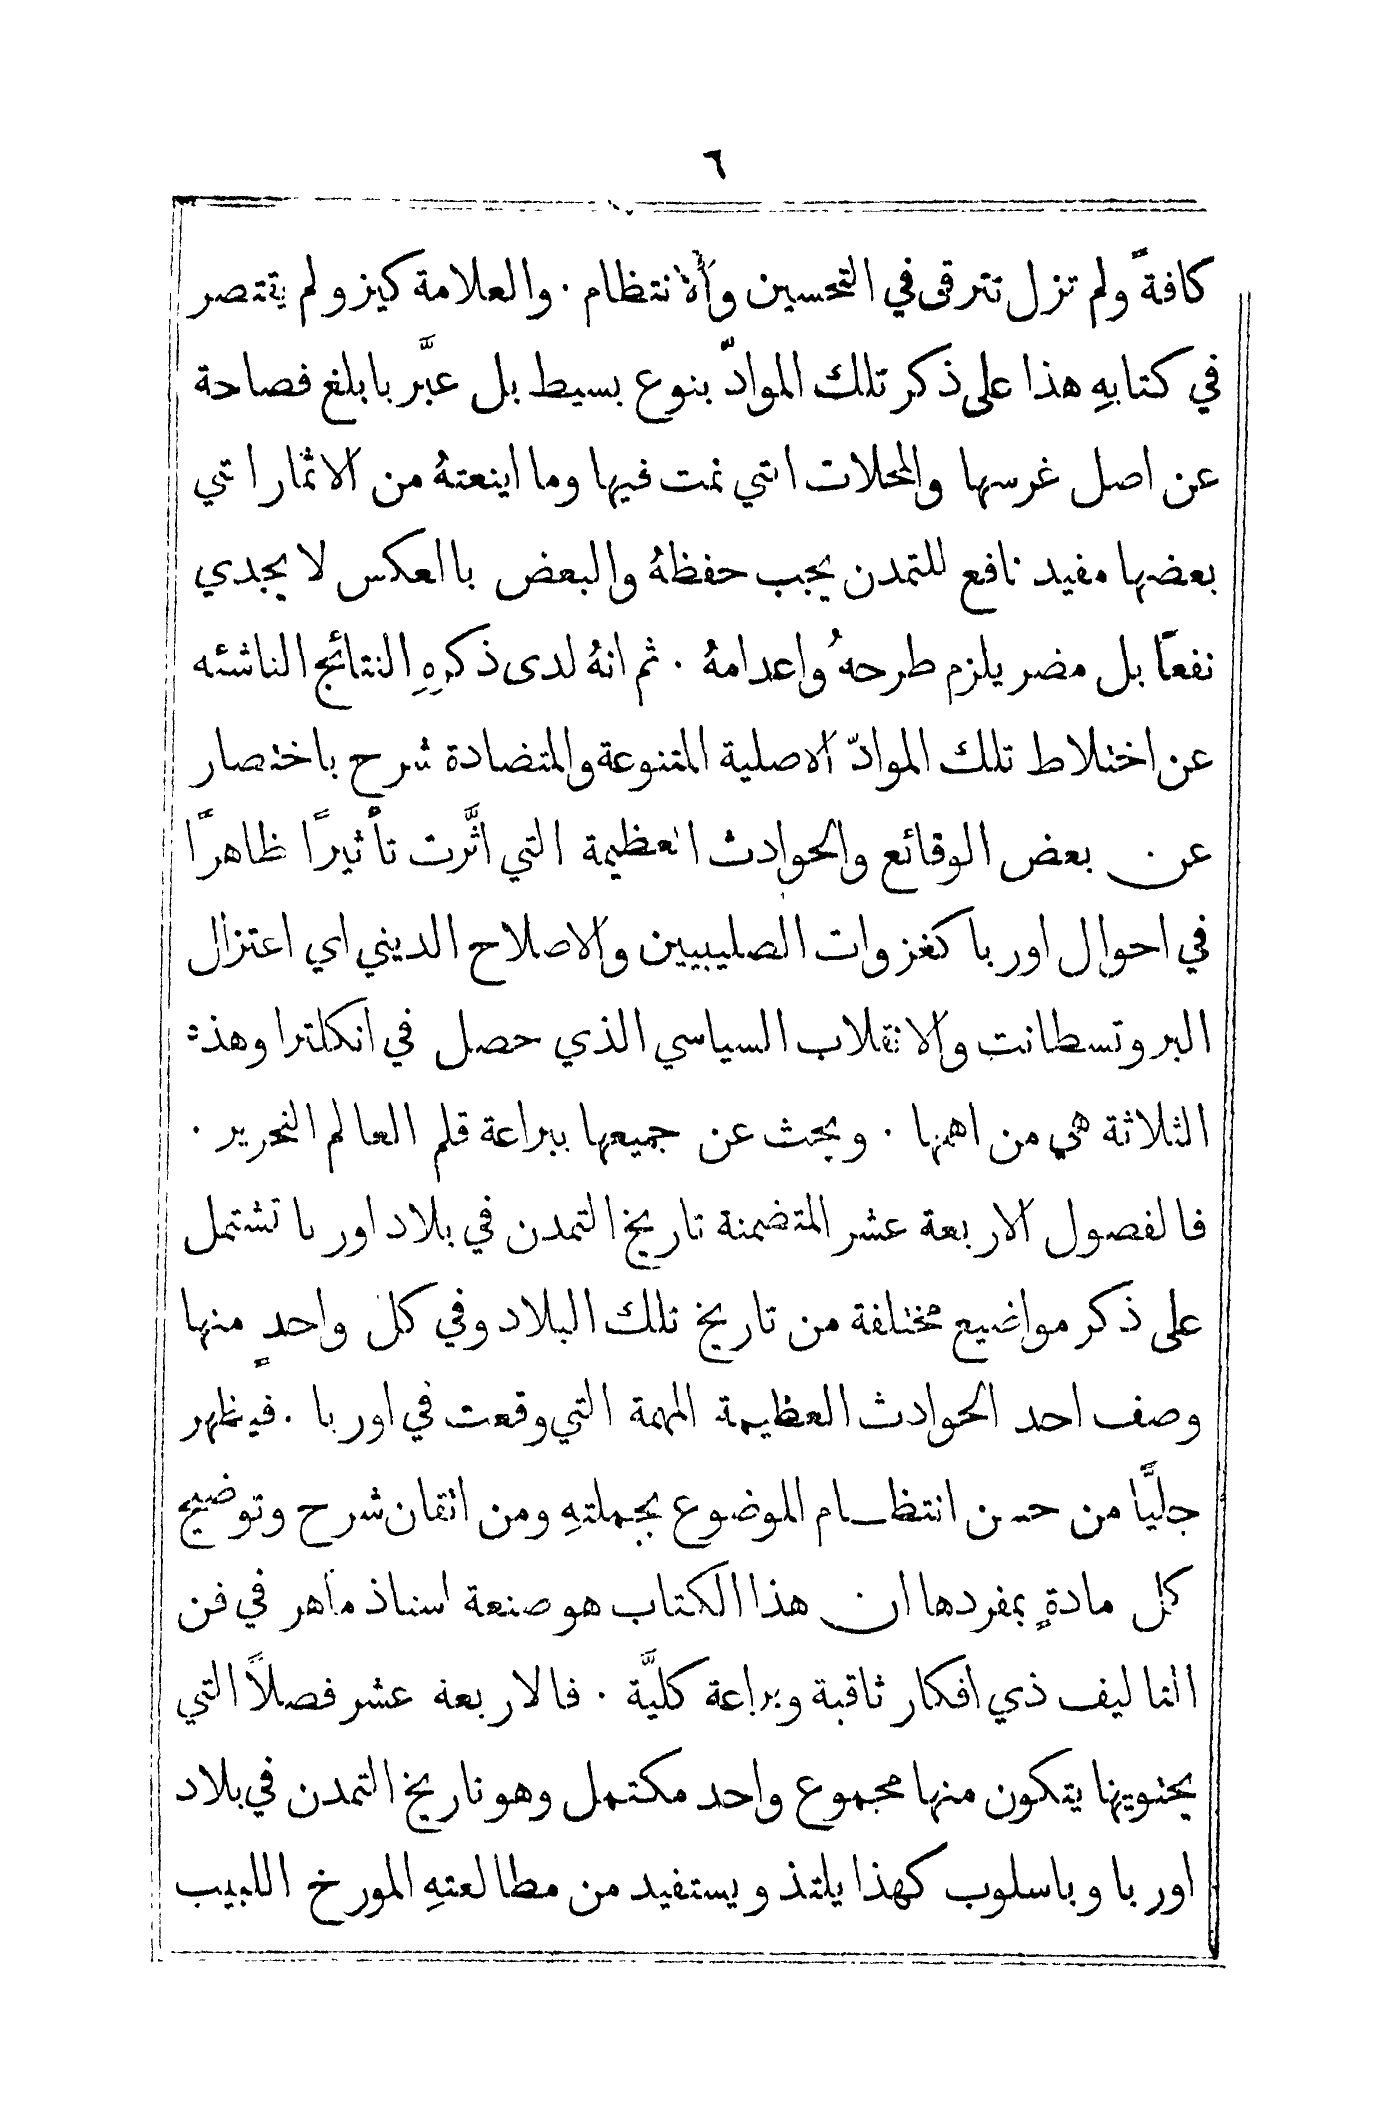 ٦
كافةً ولم تزل تترقى في التحسين والانتظام · والعلامة كيزو لم يقتصر
في كتابهِ هذا على ذكر تلك الموادّ بنوع بسيط بل عبَّر بابلغ فصاحة
عن اصل غرسها والمحلات التي نمت فيها وما اينعتهُ من الاثمار التي
بعضها مفيد نافع للتمدن يجب حفظهُ والبعض بالعكس لا يجدي
نفعًا بل مضر يلزم طرحهُ واعدامهُ · ثم انهُ لدى ذكرهِ النتائج الناشئه
عن اختلاط تلك الموادّ الاصلية المتنوعة والمتضادة شرح باختصار
عن بعض الوقائع والحوادث العظيمة التي اثَّرت تأثيرًا ظاهرًا
في احوال اوربا كغزوات الصليبيين والاصلاح الديني اي اعتزال
البروتسطانت والانقلاب السياسي الذي حصل في انكلترا وهذه
الثلاثة هي من اهمها · وبحث عن جميعها ببراعة قلم العالم النحرير ·
فالفصول الاربعة عشر المتضمنة تاريخ التمدن في بلاد اوربا تشتمل
على ذكر مواضيع مختلفة من تاريخ تلك البلاد وفي كل واحدٍ منها
وصف احد الحوادث العظيمة المهمة التي وقعت في اوربا · فيظهر
جليًّا من حسن انتظام الموضوع بجملتهِ ومن اتقان شرح وتوضيح
كل مادةٍ بمفردها ان هذا الكتاب هو صنعة استاذ ماهر في فن
التاليف ذي افكار ثاقبة وبراعة كليَّة · فالاربعة عشر فصلاً التي
يحتويها يتكون منها مجموع واحد مكتمل وهو تاريخ التمدن في بلاد
اوربا وباسلوب كهذا يلتذ ويستفيد من مطالعتهِ المورخ اللبيب